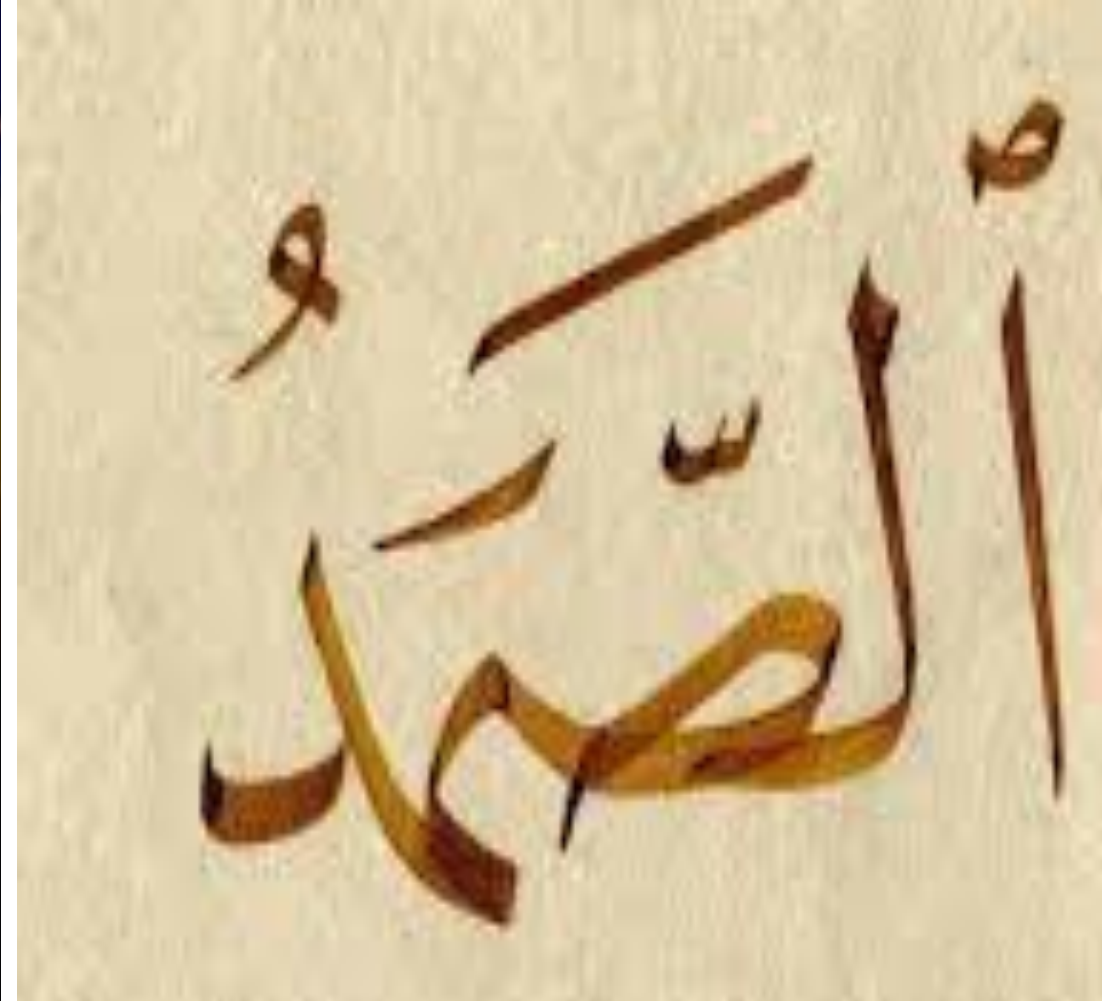 ٱلصَّمَدُ